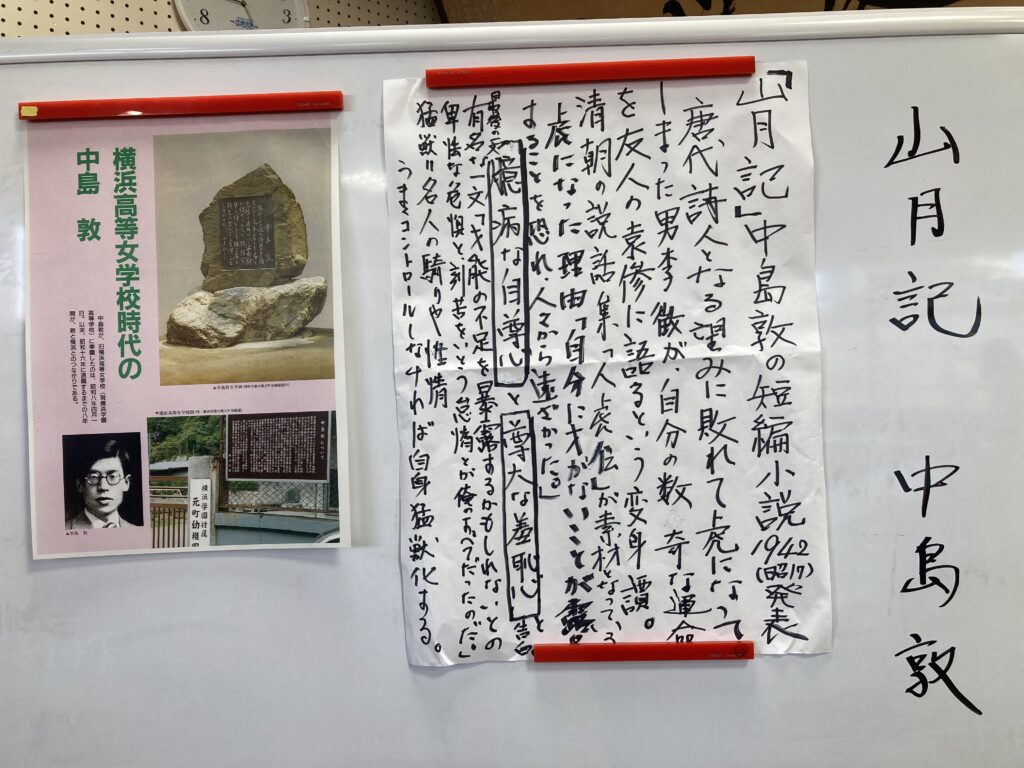 山月記　中島敦
「山月記」中島敦の短編小説1942(昭17)発表
唐代、詩人となる望みに敗れて虎になって
しまった男李徴が、自分の数奇な運命
を友人の袁傪に語るという変身譚。
清朝の説話集「人虎伝」が素材となっている
虎になった理由「自分に才がないことが露呈
することを恐れ、人から遠ざかった為」
臆病な自尊心と尊大な羞恥心と告白。
有名な一文「才能の不足を暴露するかもしれないとの
卑怯な危惧と刻苦をいとう怠惰とが俺のすべてだったのだ。」
猛獣＝名人の驕りや性情
うまくコントロールしなければ自身猛獣化する。
横浜高等女学校時代の
中島　敦
中島敦が、旧横浜高等女学校（現横浜学園
高等学校）に奉職したのは、昭和八年四月一
日。以来、昭和十六年に退職するまでの八年
間が、敦と横浜とのつながりである。
横浜学園付属
元町幼稚園
▲中島　敦
8
3